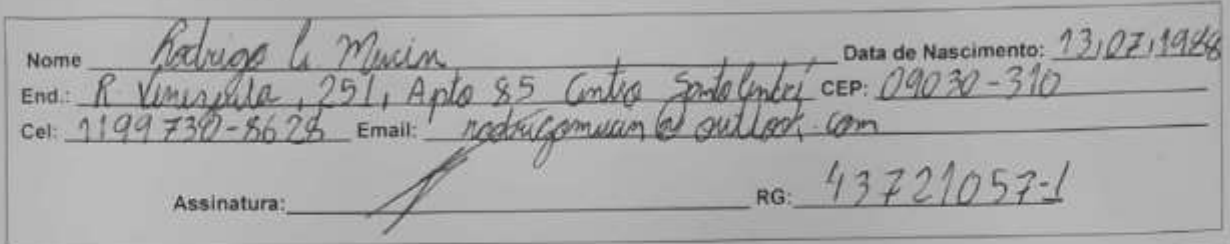 Nome Rodrigo C. Mucin Data de Nascimento: 13/07/1988
End.: R Venezuela, 251, Apto 85 Centro Santo André CEP: 09030-310
Cel: 1199730-8628 Email: rodrigomucin@outlook.com
Assinatura: RG: 43721057-1